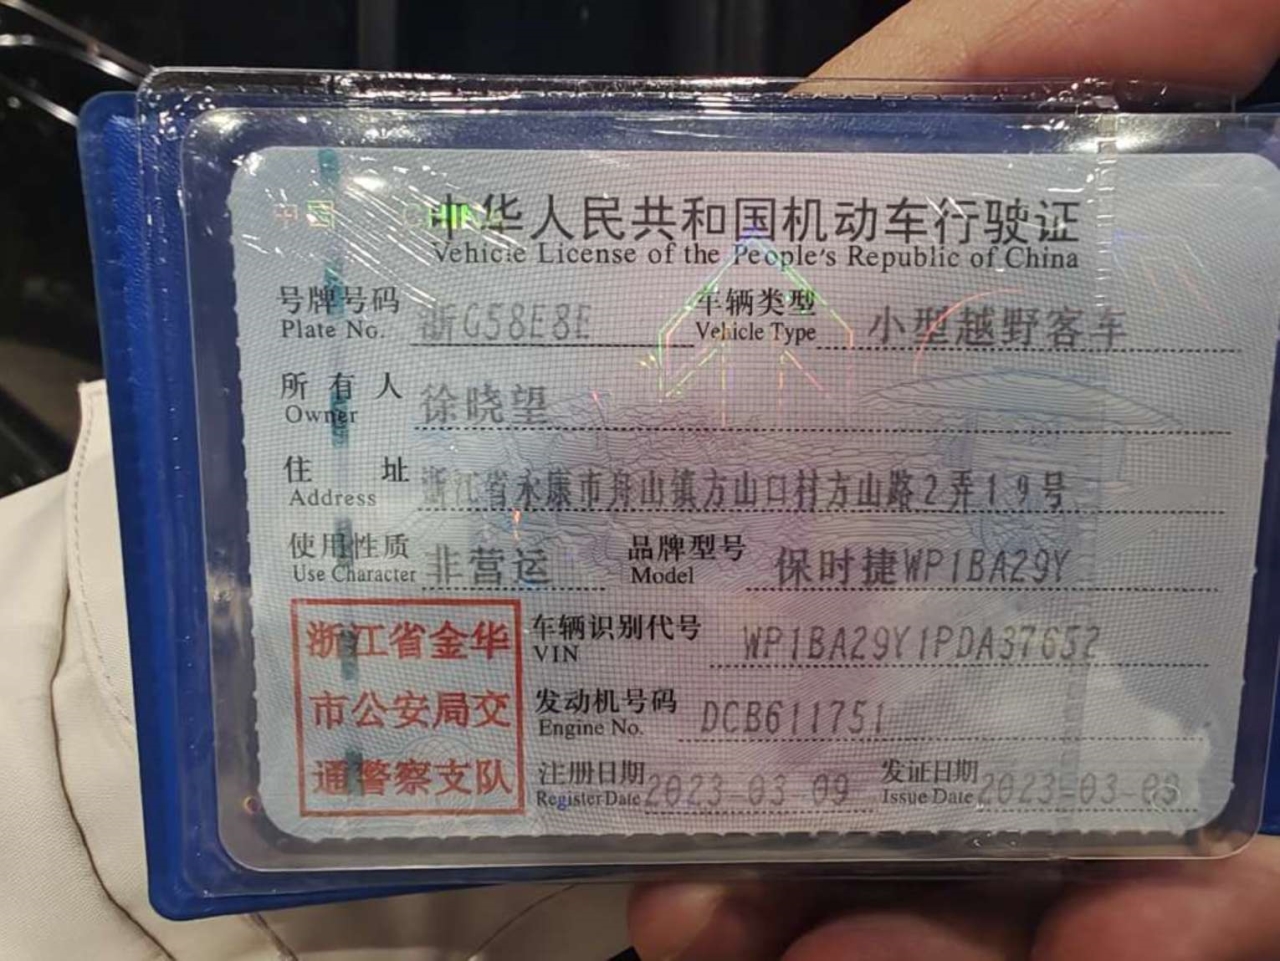 中国 CHINA
中华人民共和国机动车行驶证
Vehicle License of the People's Republic of China
号牌号码 Plate No. 浙G58E8E 车辆类型 Vehicle Type 小型越野客车
所有人 Owner 徐晓望
住址 Address 浙江省永康市舟山镇方山口村方山路2弄19号
使用性质 Use Character 非营运 品牌型号 Model 保时捷WP1BA29Y
浙江省金华 车辆识别代号 VIN WP1BA29Y1PDA37652
市公安局交 发动机号码 Engine No. DCB611751
通警察支队 注册日期 Register Date 2023-03-09 发证日期 Issue Date 2023-03-09